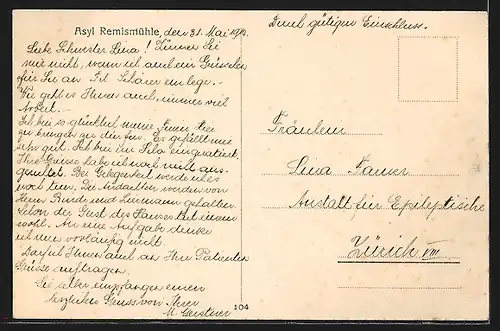 Asyl Remismühle, den 31. Mai 1912.
Liebe Schwester Lina! Zürnen Sie
mir nicht, wenn ich auch ein Grüsschen
für Sie an Frl. Schärer einlege. –
Wie geht es Ihnen auch, immer viel
Arbeit. –
Ich bin so glücklich meine Ferien hier
zu bringen zu dürfen. Es gefällt mir
sehr gut. Ich bin im Sila einquartiert.
Ihre Grüsse habe ich noch nicht aus-
gerichtet. Bei Gelegenheit werde ich es
noch tun. Die Andachten werden von
Herrn und gehalten.
Schon der Geist des Hauses tut einem
wohl. An eine Aufgabe denke
ich nun vorläufig nicht.
Darf ich Ihnen auch an Ihre Patienten
Grüsse auftragen.
Sie selber empfangen einen
herzlichen Gruss von Ihrer
M. Gerstner
104
Durch gütigen Einschluss.
Fräulein
Lina
Anstalt für Epileptische
Zürich VIII